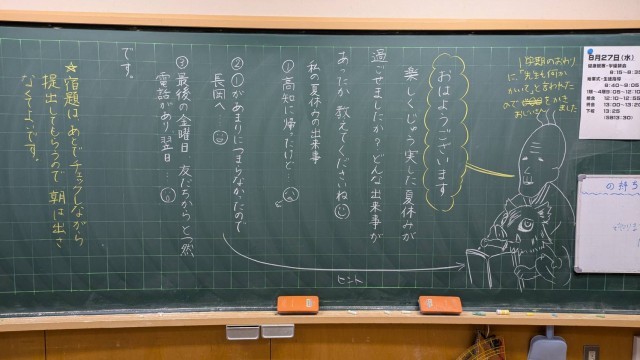 8月27日(水)
下校 13:25
の持ち
学期のおわり
に「先生も何か
かいて」と言われた
ので
をかきました
おはようございます
楽しくじゅう実した夏休みが
過ごせましたか？どんな出来事が
あったか 教えてくださいね
私の夏休みの出来事
①高知に帰ったけど…
②①があまりにつまらなかったので
長岡へ
③最後の金曜日 友だちからとつ然
電話があり翌日…
です。
☆宿題は あとでチェックしながら
提出してもらうので 朝は出さ
なくてよいです。
ヒント